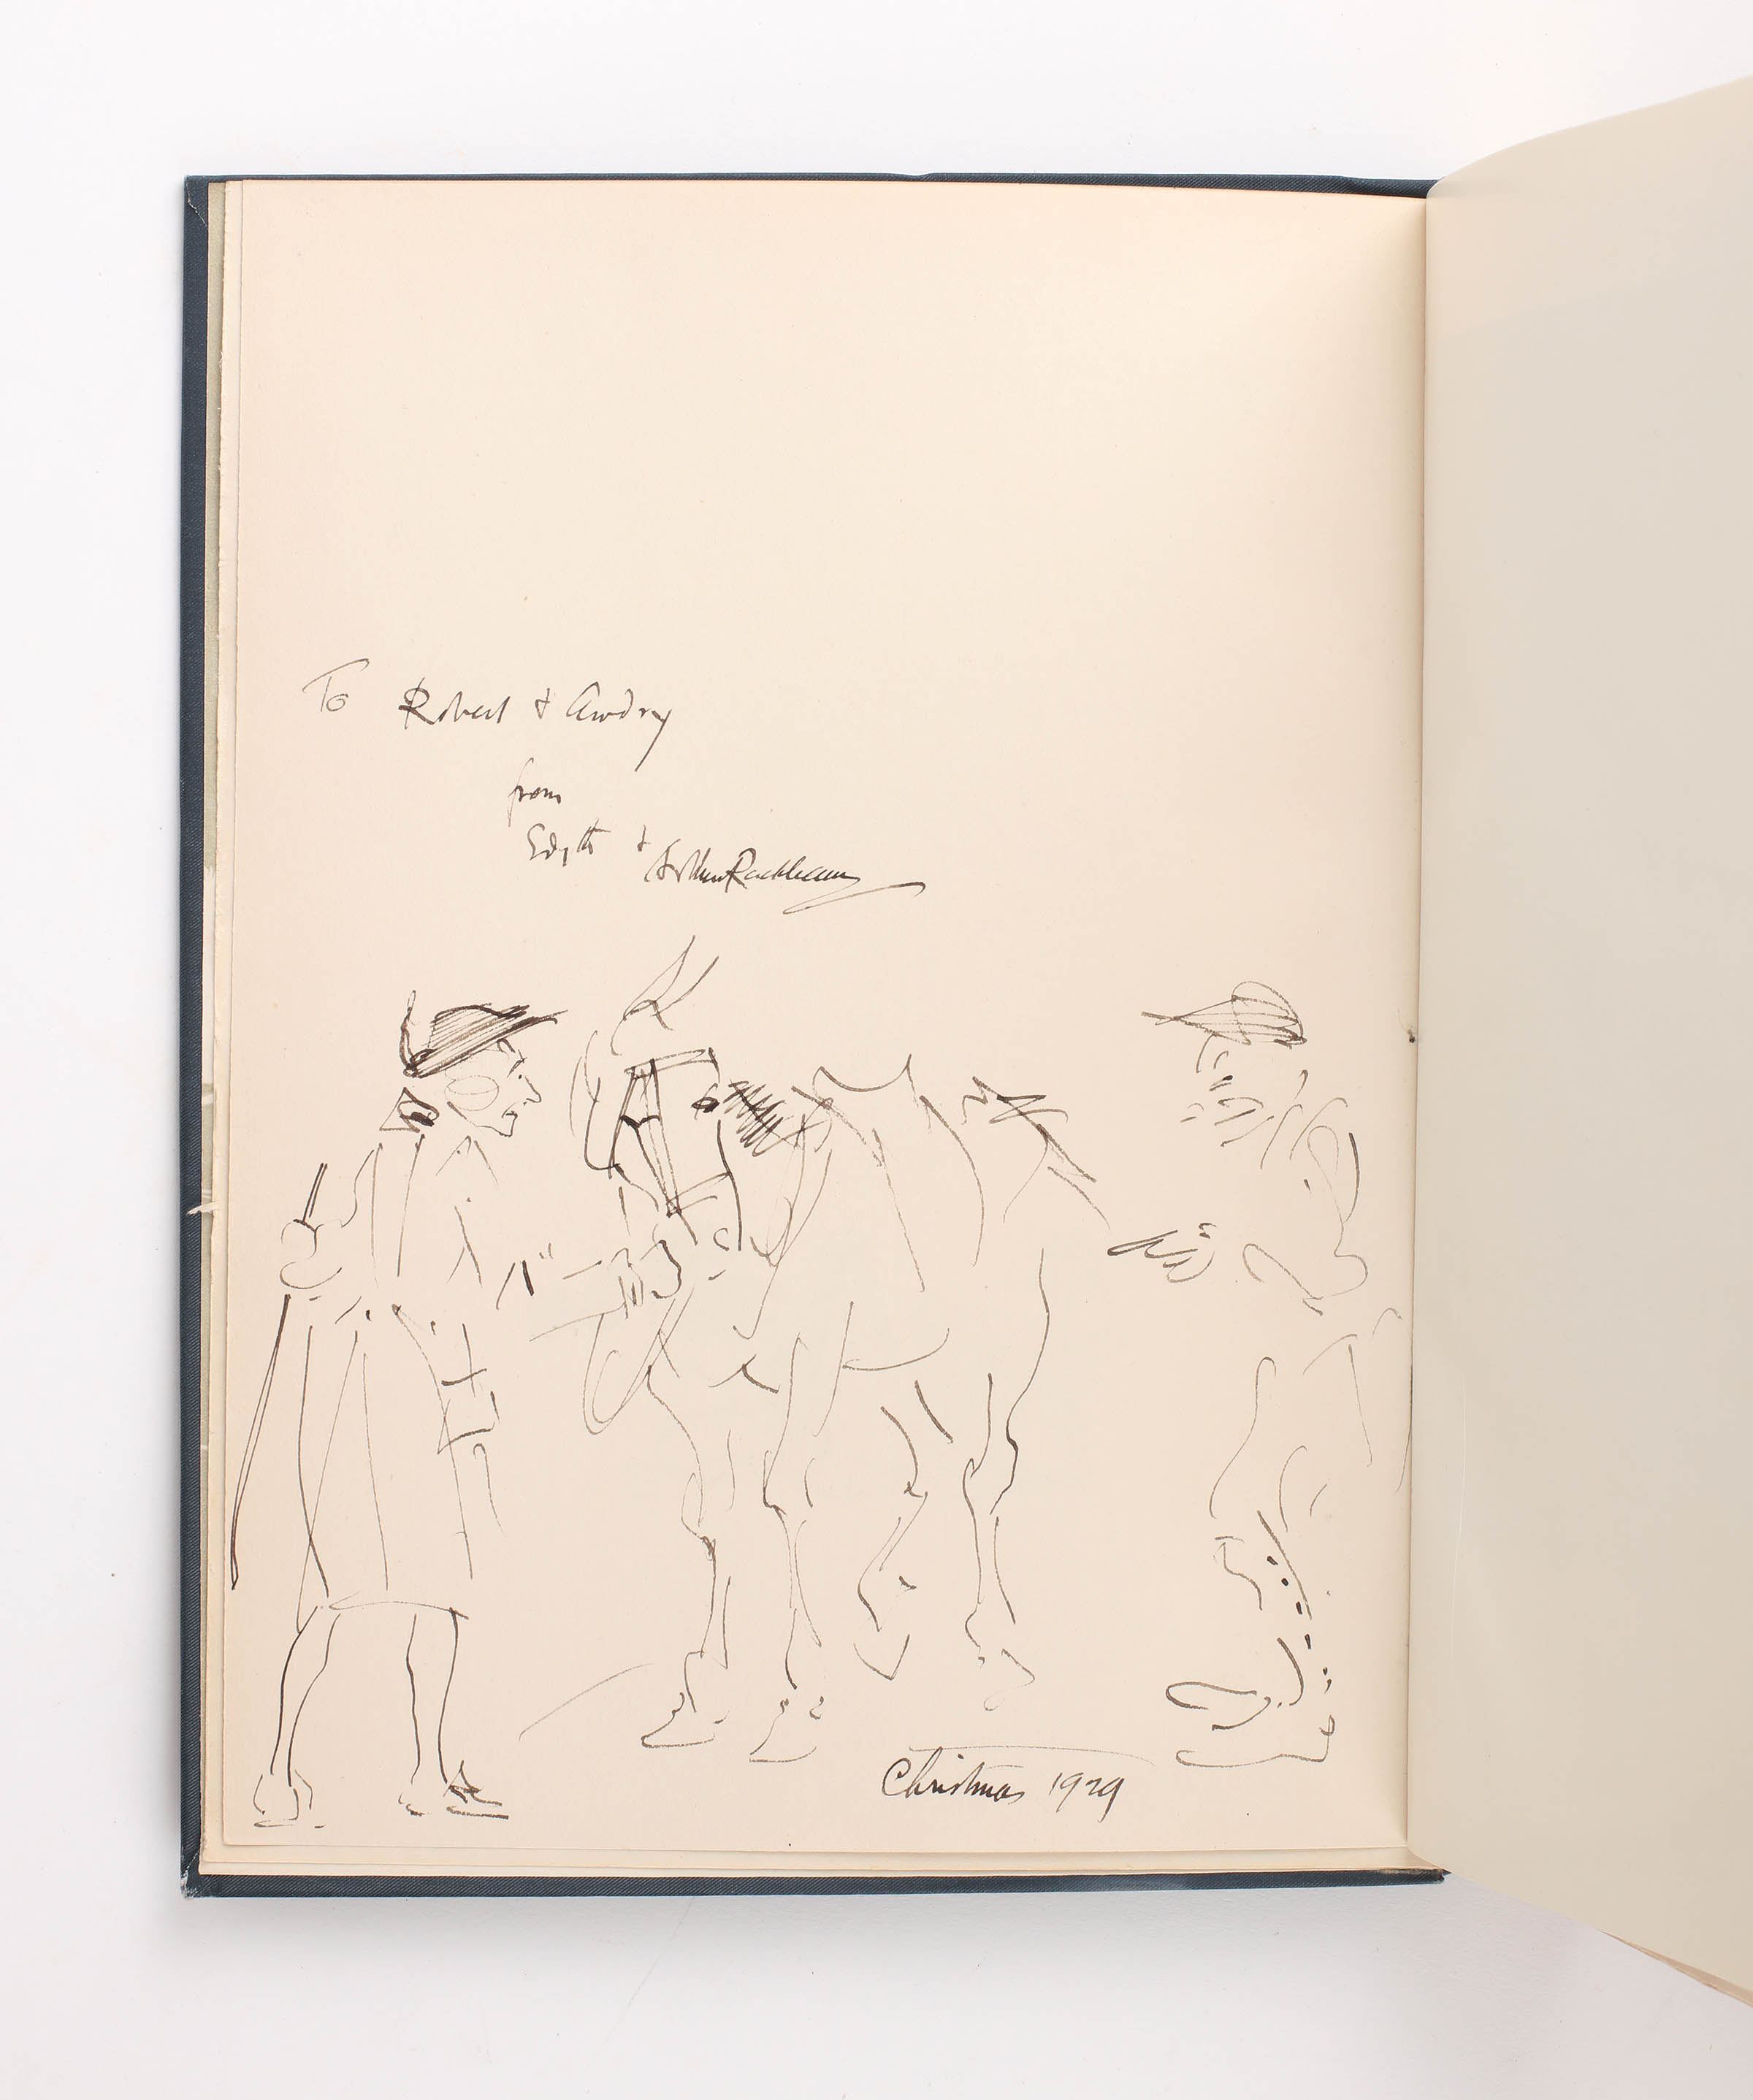 To Robert & Awdry
from
Edyth & Arthur Rackham
Christmas 1929